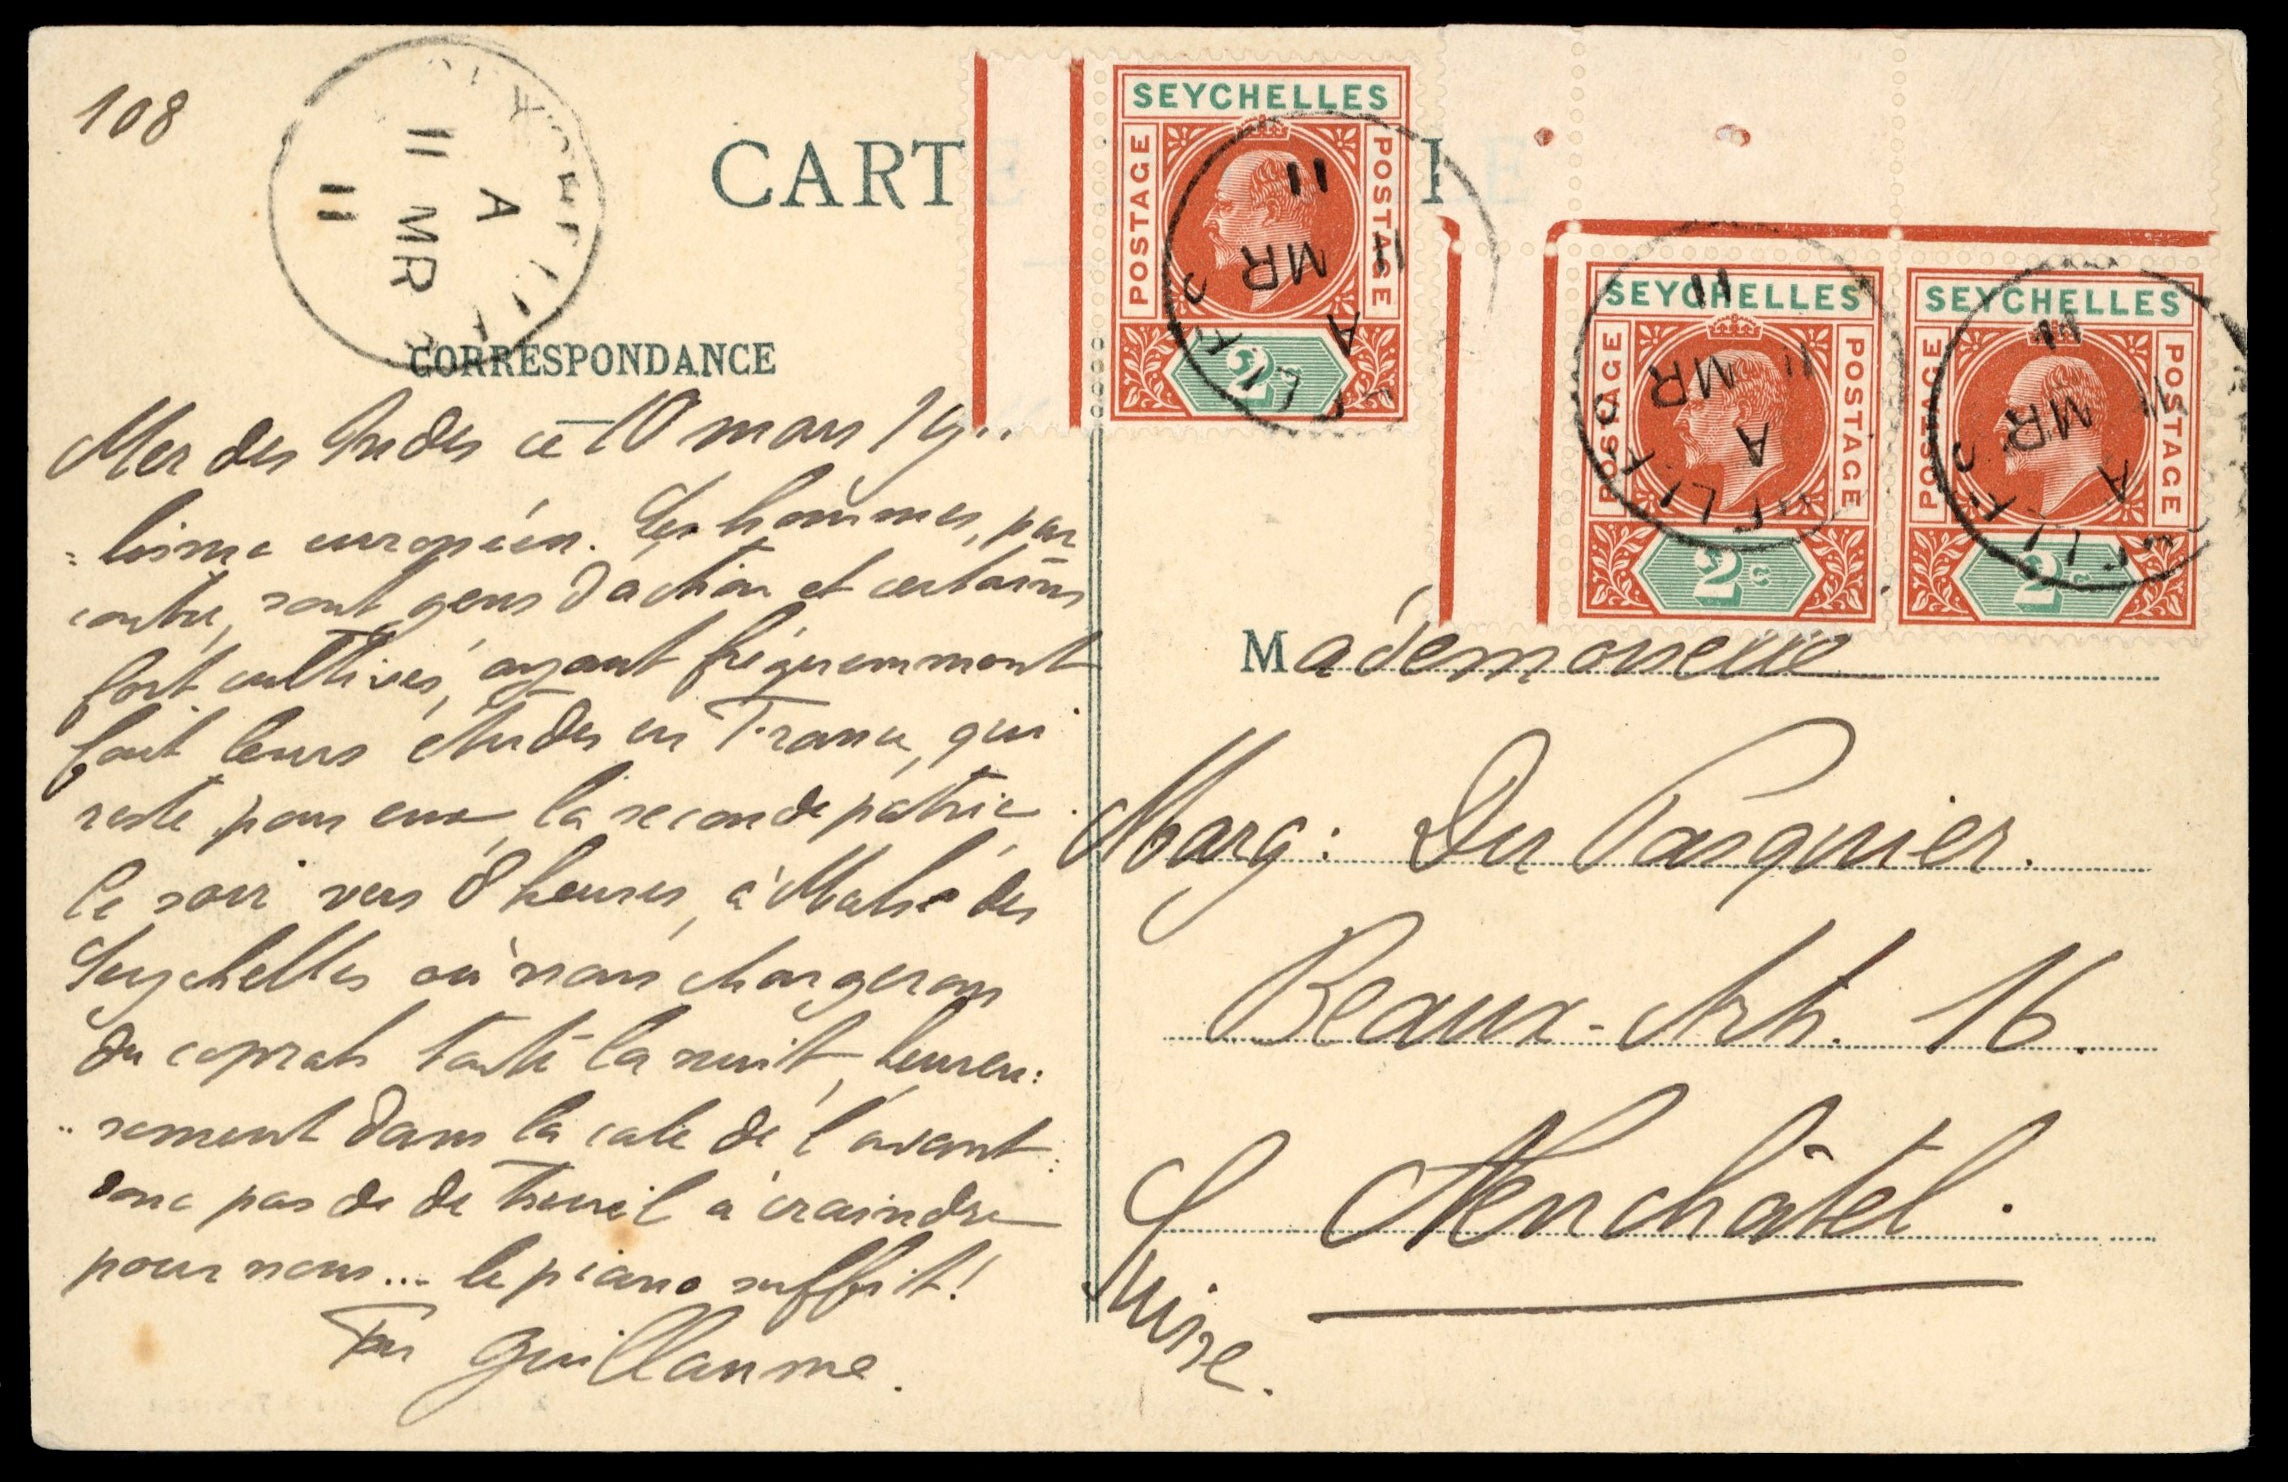 108
A
11 MR
11
CARTE
CORRESPONDANCE
Mer des Indes ce 10 mars 19..
lisme européen. Les hommes, par
contre, sont gens d'action et certains
fort cultivés, ayant fréquemment
fait leurs études en France, qui
reste pour eux, la seconde patrie.
Ce soir vers 8 heures, à Mahé des
Seychelles où nous chargerons
du coprah toute la nuit, heureu:
sement dans la cale de l'avant:
donc pas de de treuil à craindre
pour nous... le piano suffit!
Ton Guillaume.
SEYCHELLES
POSTAGE
POSTAGE
2c
11
MR
A
SEYCHELLES
POSTAGE
POSTAGE
2c
11
MR
A
SEYCHELLES
POSTAGE
POSTAGE
2c
11
MR
A
Mademoiselle
Marg: Du Pasquier.
Beaux-Arts. 16.
Neuchâtel.
Suisse.